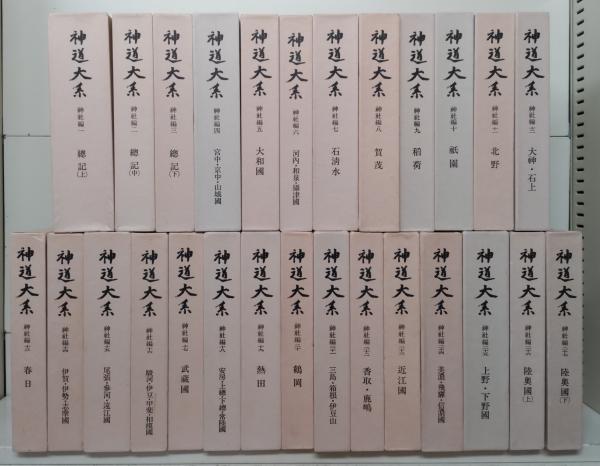 神道大系 神社編一 總記(上)
神道大系 神社編二 總記(中)
神道大系 神社編三 總記(下)
神道大系 神社編四 宮中・京中・山城國
神道大系 神社編五 大和國
神道大系 神社編六 河内・和泉・攝津國
神道大系 神社編七 石清水
神道大系 神社編八 賀茂
神道大系 神社編九 稲荷
神道大系 神社編十 祇園
神道大系 神社編十一 北野
神道大系 神社編十二 大神・石上
神道大系 神社編十三 春日
神道大系 神社編十四 伊賀・伊勢・志摩國
神道大系 神社編十五 尾張・参河・遠江國
神道大系 神社編十六 駿河・伊豆・甲斐・相模國
神道大系 神社編十七 武蔵國
神道大系 神社編十八 安房・上總・下總・常陸國
神道大系 神社編十九 熱田
神道大系 神社編二十 鶴岡
神道大系 神社編二十一 三島・箱根・伊豆山
神道大系 神社編二十二 香取・鹿嶋
神道大系 神社編二十三 近江國
神道大系 神社編二十四 美濃・飛騨・信濃國
神道大系 神社編二十五 上野・下野國
神道大系 神社編二十六 陸奥國(上)
神道大系 神社編二十七 陸奥國(下)